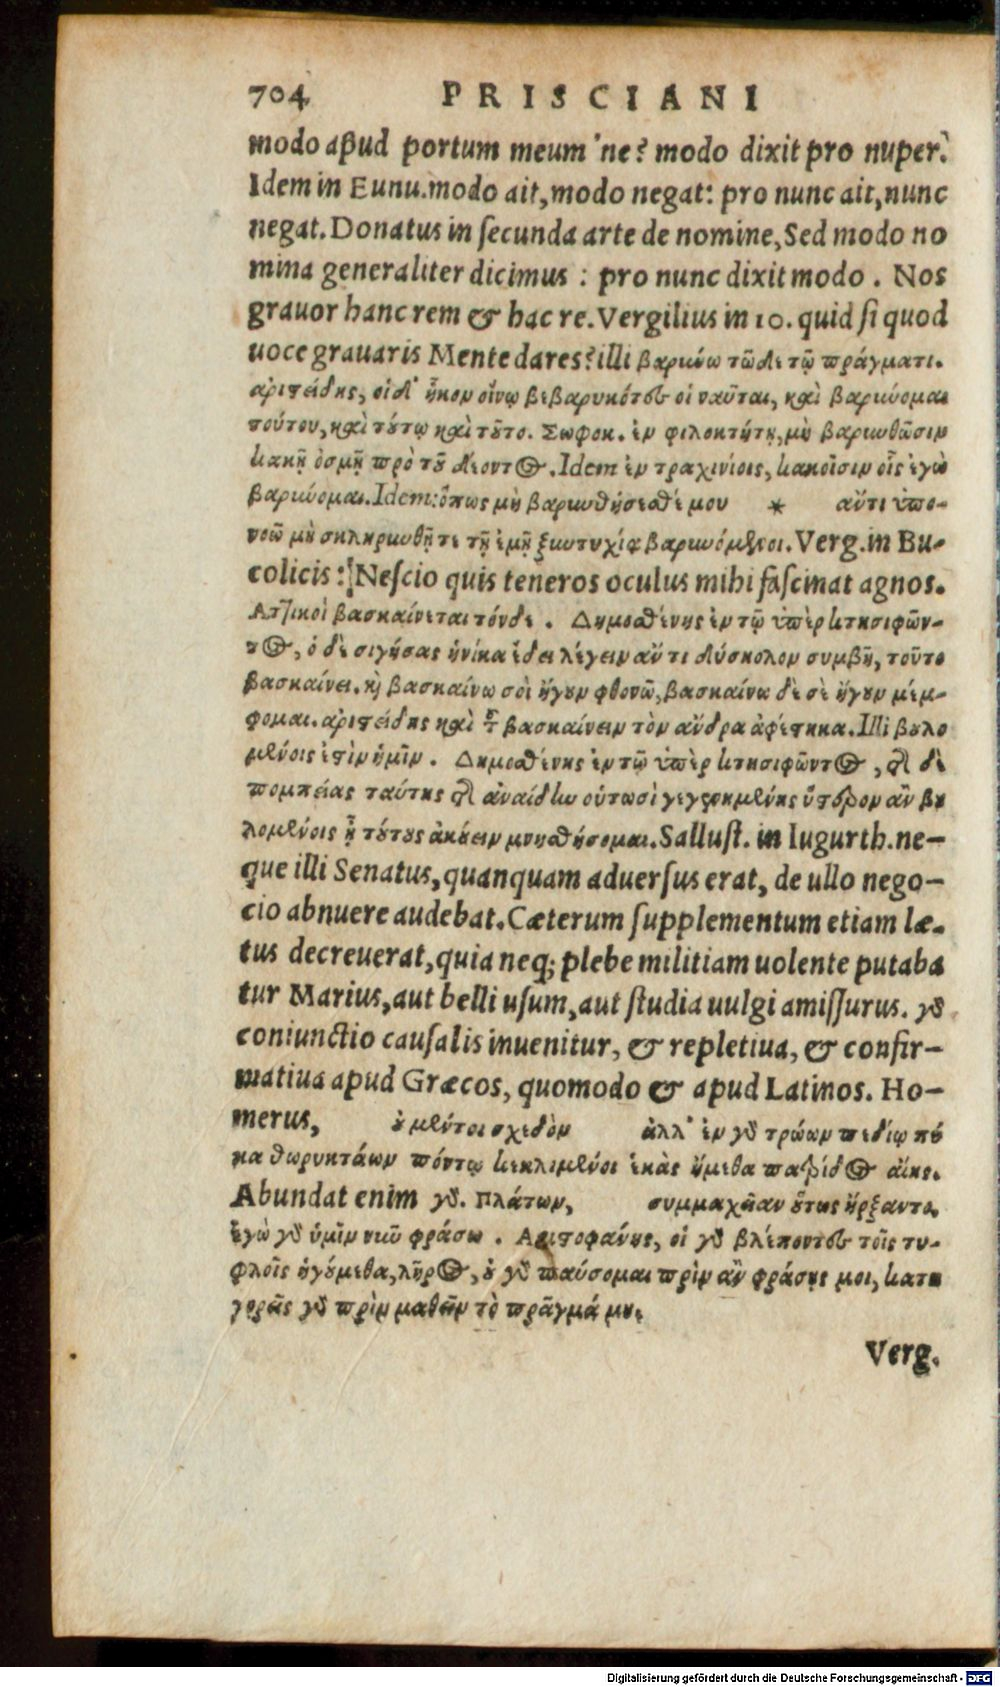 704 PRISCIANI
modo apud portum meum'ne? modo dixit pro nuper.
Idem in Eunu. modo ait, modo negat: pro nunc ait, nunc
negat. Donatus in secunda arte de nomine, Sed modo no
mina generaliter dicimus : pro nunc dixit modo . Nos
grauor hanc rem & hac re. Vergilius in 10. quid si quod
uoce grauaris Mente dares? illi βαρυνω τῷδε τῷ πράγματι.
ἀριστείδης, οἱδ' ἧκον οἴνῳ βεβαρυκότες οἱ ναῦται, καὶ βαρύνομαι
τούτου, καὶ τούτῳ καὶ τοῦτο. Σοφοκ. ἐν φιλοκτήτῃ, μὴ βαρυνθῶσιν
κακῇ ὀσμῇ πρὸ τοῦ δέοντος. Idem ἐν τραχινίοις, κακοῖσιν οἷς ἐγὼ
βαρύνομαι. Idem: ὅπως μὴ βαρυνθήσεσθέ μου * αὔτι ὑπο-
νοῶ μὴ σκληρυνθῇ τι τῇ ἐμῇ ξυντυχίᾳ βαρυνόμενοι. Verg. in Bu-
colicis: Nescio quis teneros oculus mihi fascinat agnos.
Ἀττικοὶ βασκαίνεται τόνδε . Δημοσθένης ἐν τῷ ὑπὲρ κτησιφῶν-
τος, ὁ δὲ σιγήσας ἡνίκα ἔδει λέγειν ἄν τι δύσκολον συμβῇ, τοῦτο
βασκαίνει. καὶ βασκαίνω σοὶ ἤγουν φθονῶ, βασκαίνω δὲ σὲ ἤγουν μέμ-
φομαι. ἀριστείδης καὶ βασκαίνειν τὸν ἄνδρα ἀφέστηκα. Illi βουλο
μένοις ἐστὶν ἡμῖν . Δημοσθένης ἐν τῷ ὑπὲρ κτησιφῶντος, περὶ δὲ
πομπείας ταύτης περὶ ἀναίδην οὑτωσὶ γεγενημένης ὕστερον ἂν βου
λομένοις ᾖ τούτους ἀκούειν μνησθήσομαι. Sallust. in Iugurth. ne-
que illi Senatus, quanquam aduersus erat, de ullo nego-
cio abnuere audebat. Cæterum supplementum etiam læ-
tus decreuerat, quia neq; plebe militiam uolente putaba
tur Marius, aut belli usum, aut studia uulgi amissurus. γὰρ
coniunctio causalis inuenitur, & repletiua, & confir-
matiua apud Græcos, quomodo & apud Latinos. Ho-
merus, οὐ μέντοι σχεδὸν ἀλλ' ἐν γὰρ τρώων πεδίῳ πύ
κα θωρηκτάων πόντῳ κεκλιμένοι ἑκὰς ἥμεθα πατρίδος αἴης.
Abundat enim γὰρ. Πλάτων, συμμαχεῖαν οὕτως ἤρξαντο,
ἐγὼ γὰρ ὑμῖν νῦν φράσω . Ἀριστοφάνης, οἱ γὰρ βλέποντες τοῖς τυ-
φλοῖς ἡγούμεθα, λῆρος, οὐ γὰρ παύσομαι πρὶν ἂν φράσῃς μοι, κατη
γορεῖς γὰρ πρὶν μαθεῖν τὸ πρᾶγμά μου.
Verg.
Digitalisierung gefördert durch die Deutsche Forschungsgemeinschaft - DFG